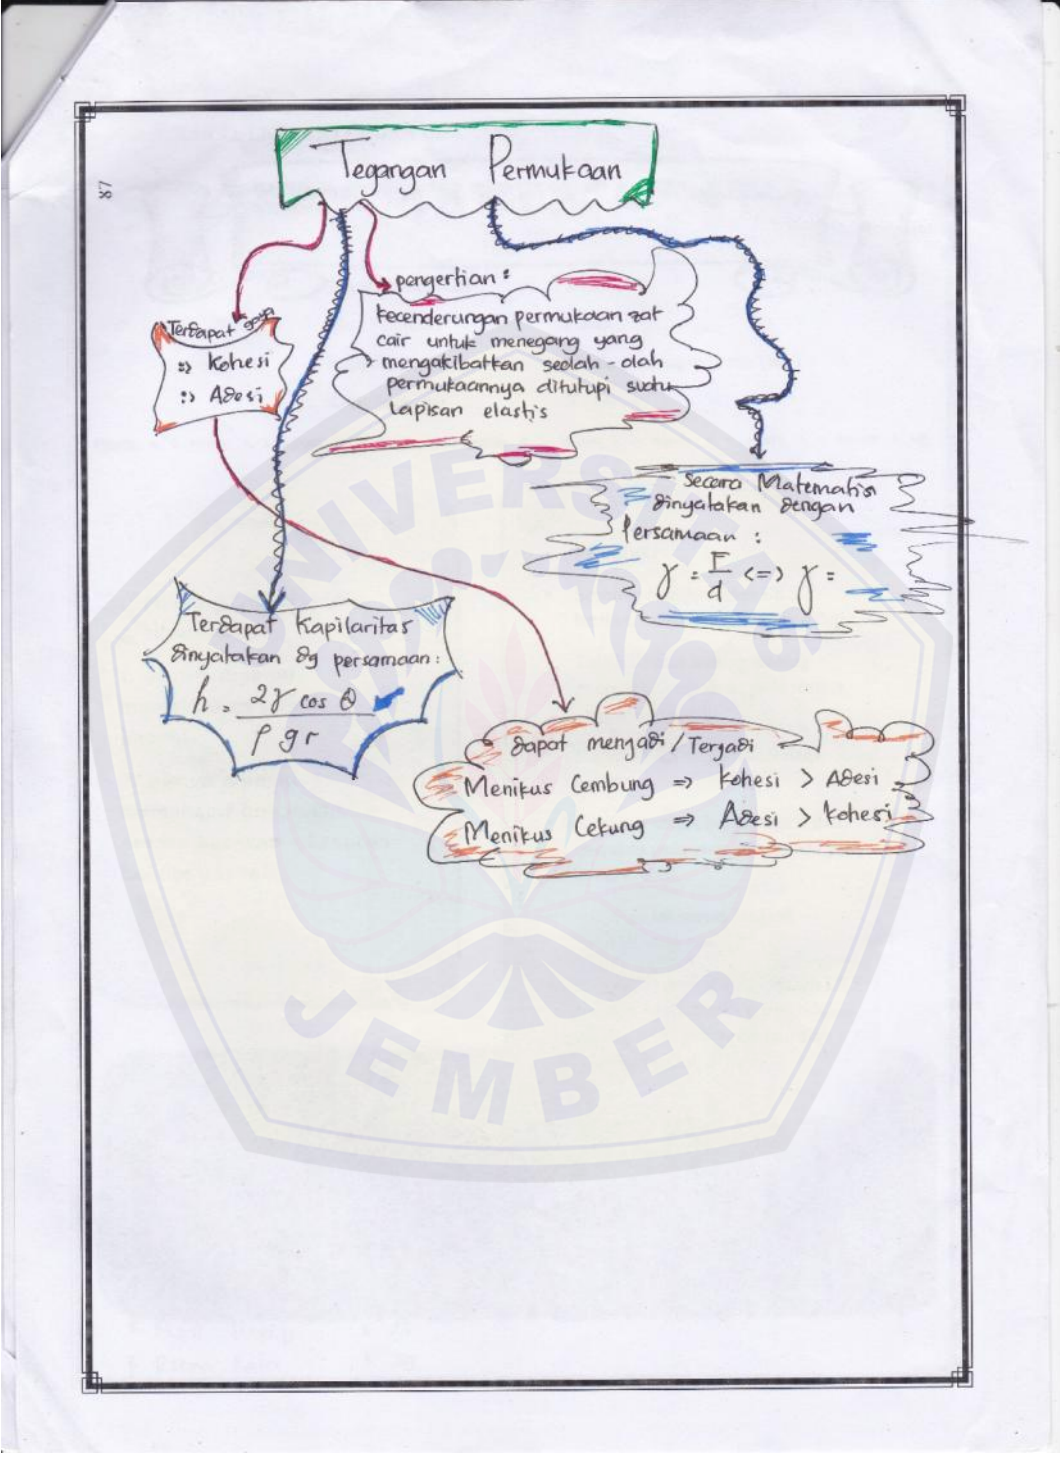 87
Tegangan Permukaan
pengertian :
kecenderungan permukaan zat
cair untuk menegang yang
mengakibatkan seolah-olah
permukaannya ditutupi suatu
lapisan elastis
Terdapat gaya
=> Kohesi
=> Adesi
Secara Matematis
dinyatakan dengan
Persamaan :
γ = F/d <=> γ =
Terdapat Kapilaritas
dinyatakan dg persamaan :
h = 2γ cos θ
ρ g r
dapat menjadi/Terjadi
Menikus Cembung => Kohesi > Adesi
Menikus Cekung => Adesi > Kohesi
UNIVERSITAS
JEMBER